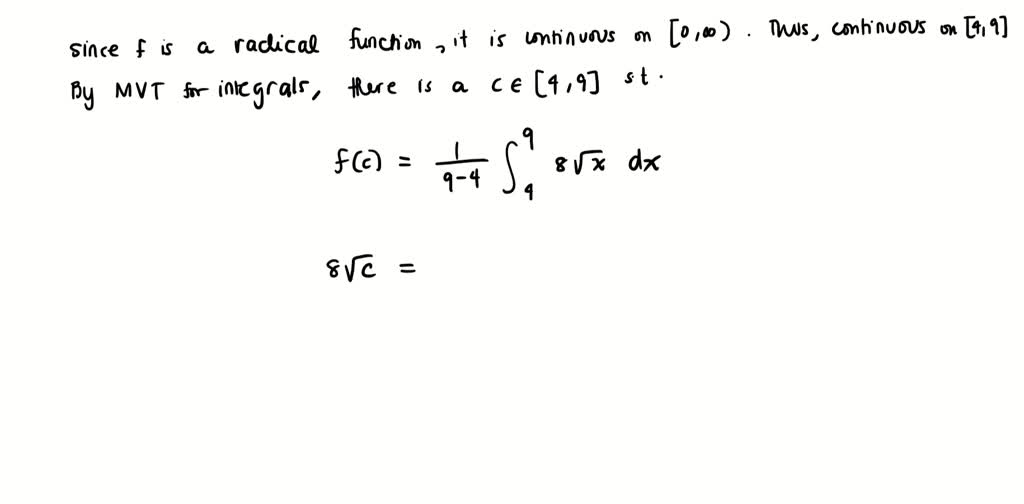 since f is a radical function, it is continuous on [0,∞). Thus, continuous on [4,9]
By MVT for integrals, there is a c ∈ [4,9] st.
f(c) = 1/(9-4) ∫₄⁹ 8√x dx
8√c =